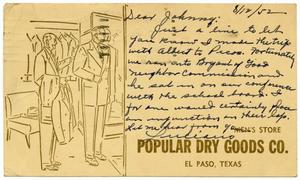 8/12/52
Dear Johnny:
Just a line to let
you know I made the trip
with Albert to Pecos. Fortunately
we ran onto Bryan of Good
neighbor Commission and
he sat in on our conference
with the school board. I
for one would certainly place
an injunction on their
Let me hear from you.
MEN'S STORE
POPULAR DRY GOODS CO.
EL PASO, TEXAS